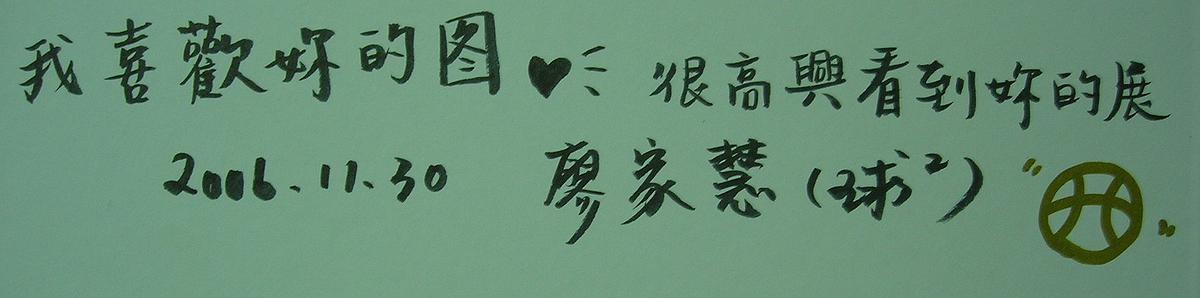 我喜歡妳的图♥ 很高興看到妳的展
2006.11.30 廖家慧(球²)